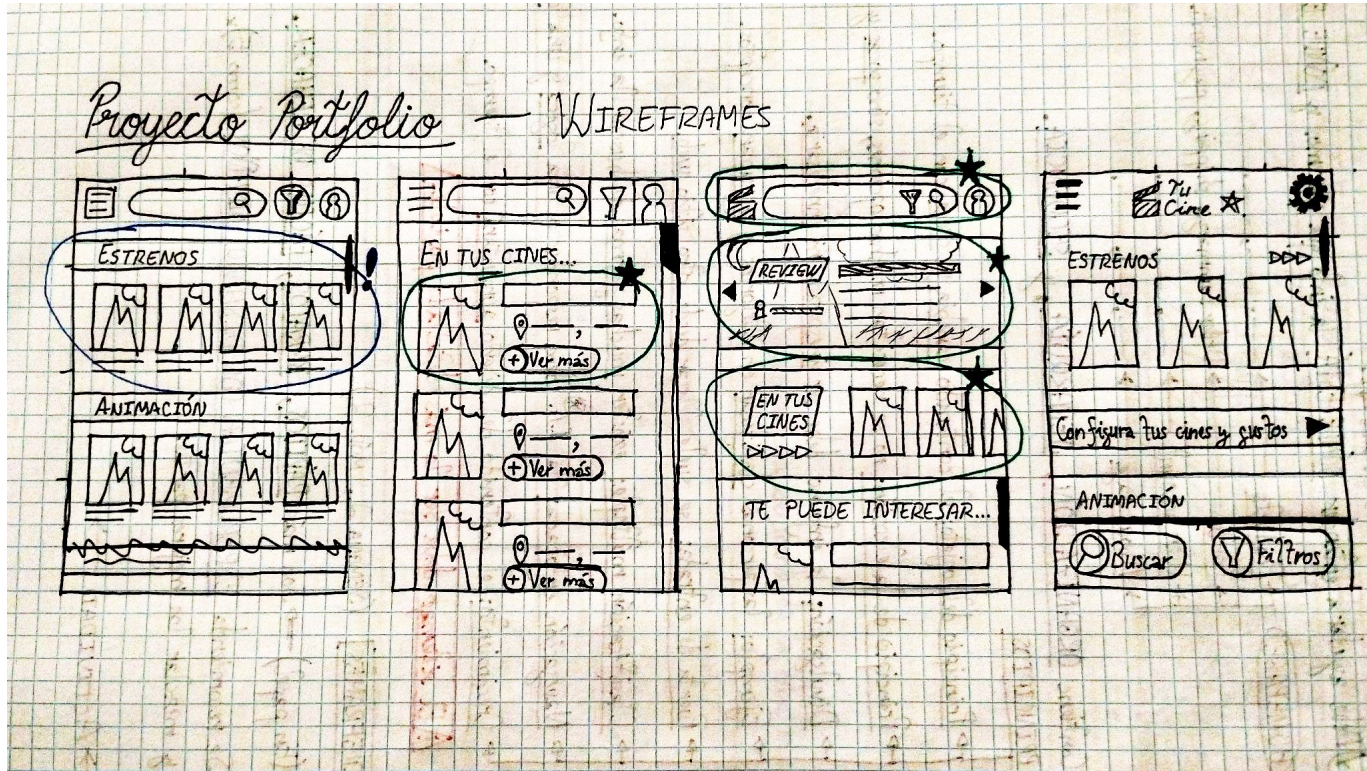 Proyecto Portfolio — WIREFRAMES
ESTRENOS
!
ANIMACIÓN
EN TUS CINES...
Ver más
Ver más
Ver más
REVIEW
EN TUS
CINES
TE PUEDE INTERESAR...
Tu
Cine
ESTRENOS
Configura tus cines y gustos
ANIMACIÓN
Buscar
Filtros